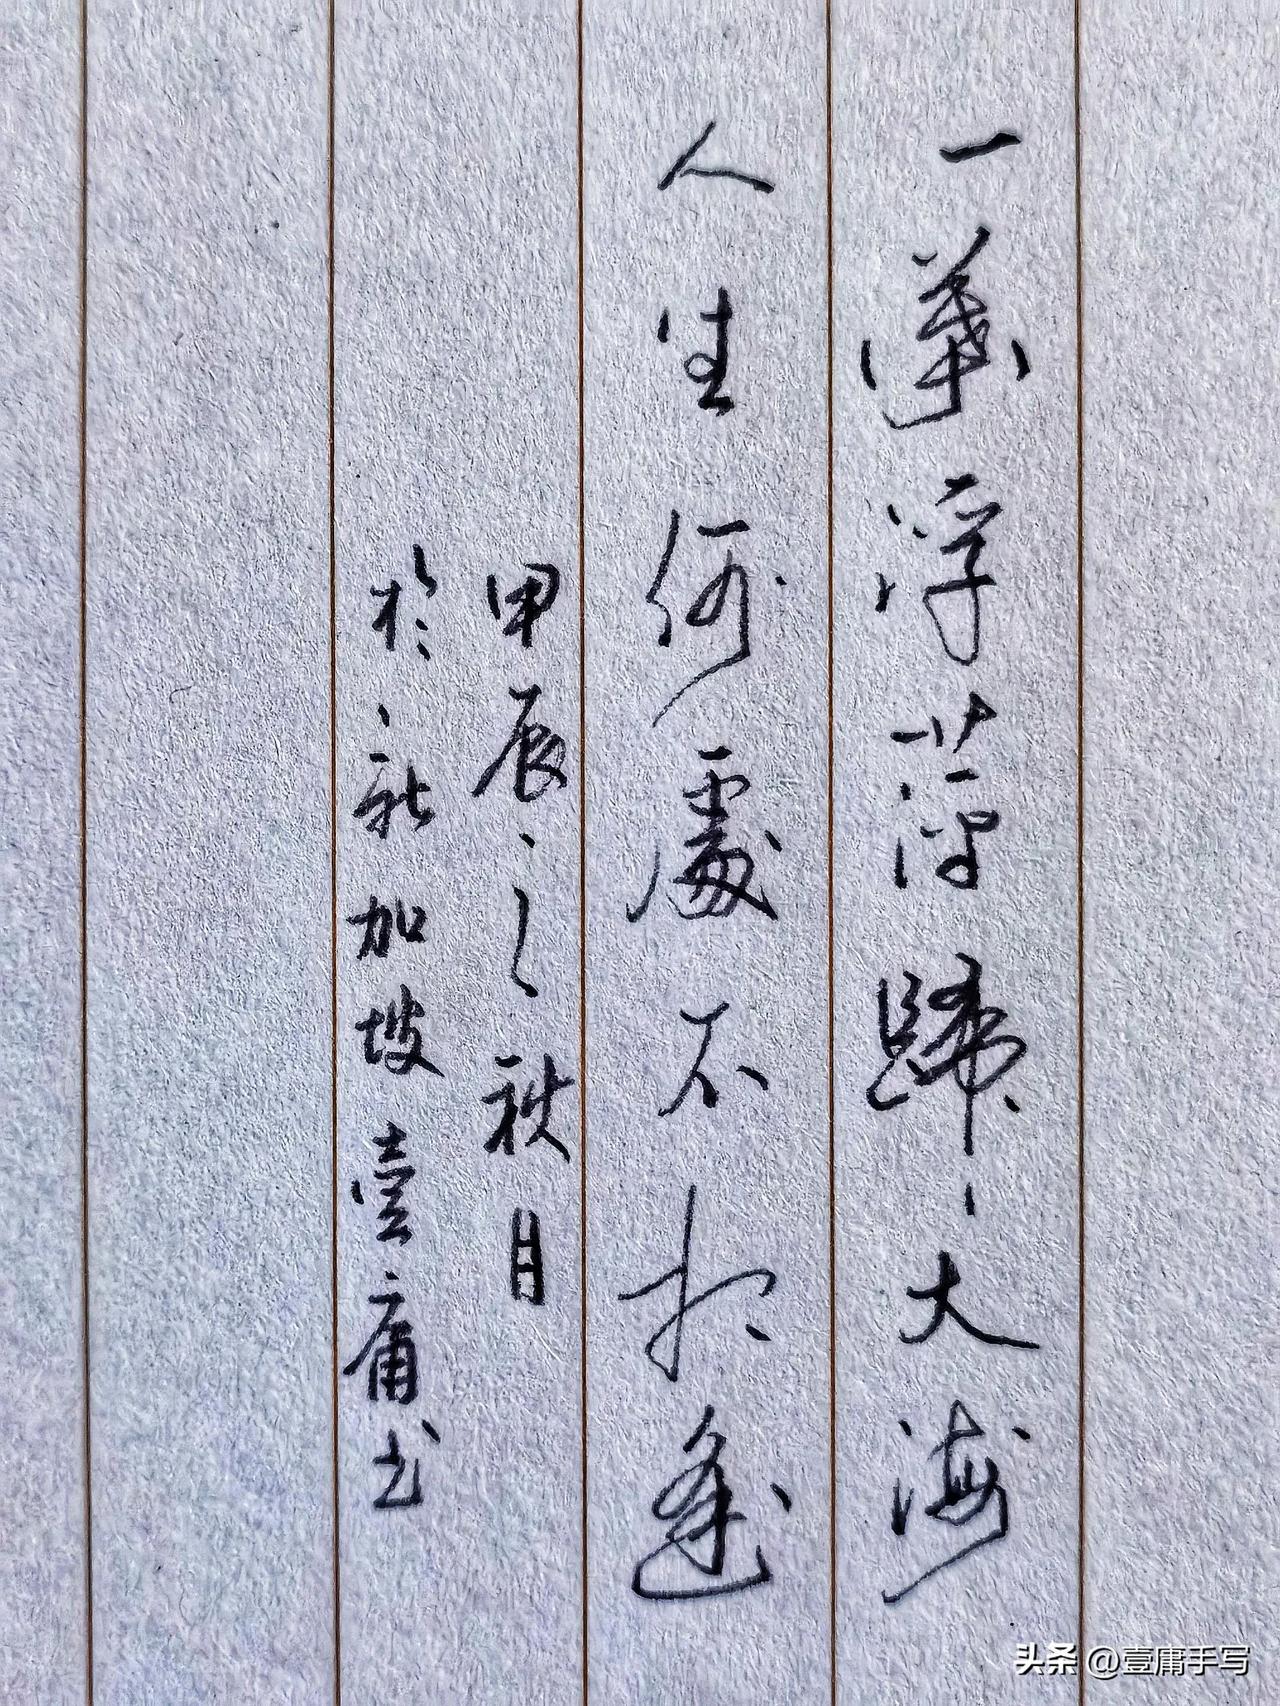 一葉浮萍歸大海
人生何處不相逢
甲辰之秋月
於新加坡壹庸书
头条 @壹庸手写